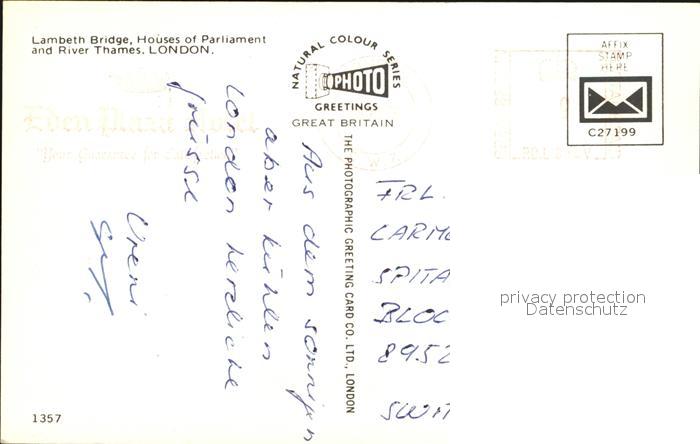 Lambeth Bridge, Houses of Parliament
and River Thames, LONDON.
NATURAL COLOUR SERIES
PHOTO
GREETINGS
GREAT BRITAIN
AFFIX
STAMP
HERE
C27199
Eden Plaza Hotel
"Your Guarantee for
THE PHOTOGRAPHIC GREETING CARD CO. LTD., LONDON
Aus dem sonnigen
aber kühlen
London herzliche
Grüsse
Vreni
FRL.
CARME
SPITA
BLOC
8952
SWIT
privacy protection
Datenschutz
1357